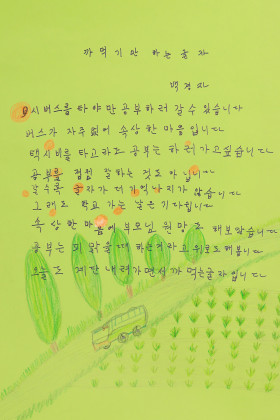 까먹기만 하는 글자
백경자
9시버스를 타야만 공부하러 갈수 있습니다
버스가 자주 없어 속상한 마음 입니다
택시비를 타고라도 공부는 하러 가고싶습니다
공부를 점점 잘하는 것도 아닙니다
갈수록 글자가 더 기억나지가 않습니다
그래도 학교 가는 날은 기다립니다
속상한 마음에 부모님 원망도 해보았습니다
공부는 피 맑을때 하는거라고 위로도 해봅니다
오늘도 계단 내려가면서 까먹은글자 입니다